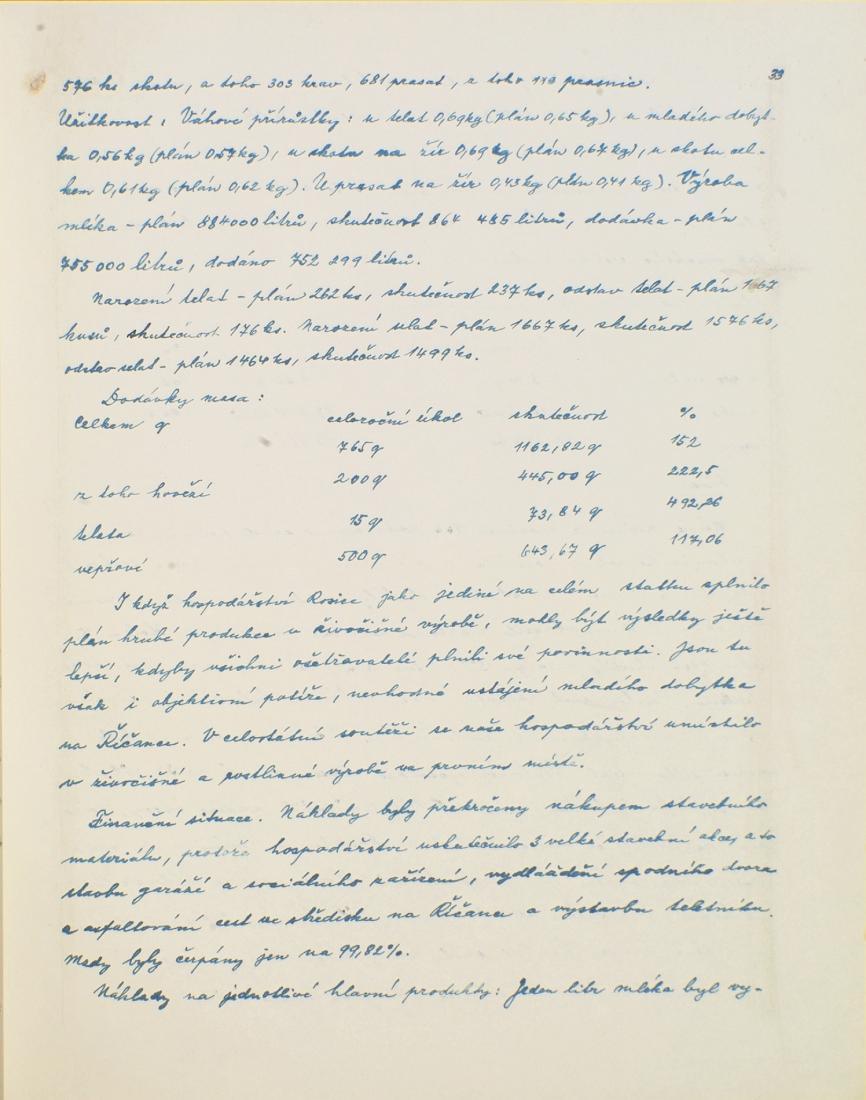 33
576 ks skotu, a toho 303 krav, 681 prasat, z toho 119 prasnic.
Užitkovost: Váhové přírůstky: u telat 0,69 kg (plán 0,65 kg), u mladého dobyt-
ka 0,56 kg (plán 0,57 kg), u skotu na žír 0,69 kg (plán 0,67 kg), u skotu cel-
kem 0,61 kg (plán 0,62 kg). U prasat na žír 0,43 kg (plán 0,41 kg). Výroba
mléka - plán 884000 litrů, skutečnost 864 485 litrů, dodávka - plán
755 000 litrů, dodáno 752 299 litrů.
Narození telat - plán 262 ks, skutečnost 237 ks, odstav telat - plán 167
kusů, skutečnost 176 ks. Narození selat - plán 1667 ks, skutečnost 1576 ks,
odstav selat - plán 1464 ks, skutečnost 1499 ks.
Dodávky masa:
Celkem q celoroční úkol skutečnost %
765 q 1162,82 q 152
z toho hovězí 200 q 445,00 q 222,5
telata 15 q 73,84 q 492,26
vepřové 500 q 643,67 q 117,06
I když hospodářství Rosice jako jediné na celém statku splnilo
plán hrubé produkce v živočišné výrobě, mohly být výsledky ještě
lepší, kdyby všichni ošetřovatelé plnili své povinnosti. Jsou tu
však i objektivní potíže, nevhodné ustájení mladého dobytka
na Říčance. V celostátní soutěži se naše hospodářství umístilo
v živočišné a rostlinné výrobě na prvním místě.
Finanční situace. Náklady byly překročeny nákupem stavebního
materiálu, protože hospodářství uskutečnilo 3 velké stavební akce, a to
stavbu garáží a sociálního zařízení, vydláždění spodního dvora
a asfaltování cest ve středisku na Říčance a výstavbu teletníku.
Mzdy byly čerpány jen na 99,82%.
Náhlady na jednotlivé hlavní produkty: Jeden litr mléka byl vy-